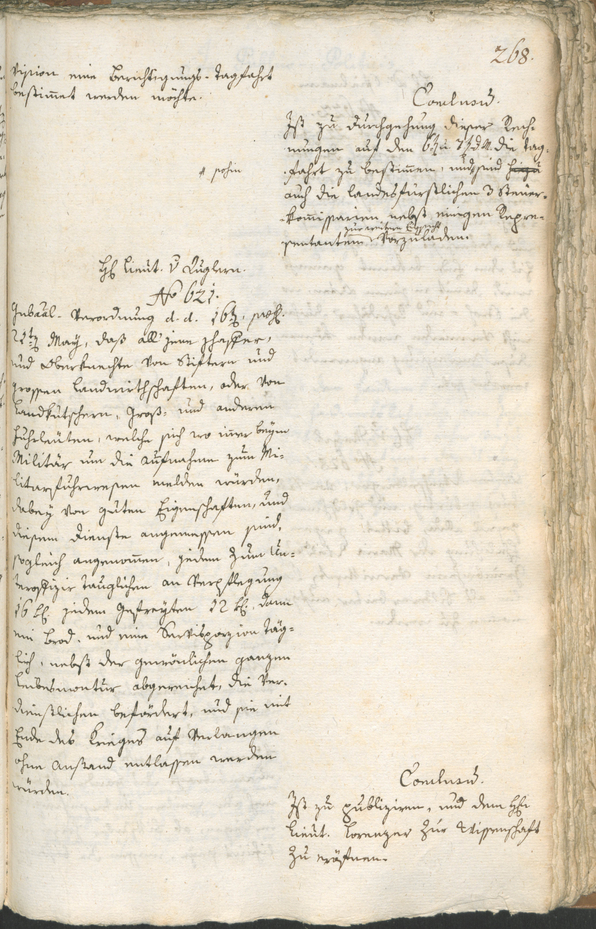 268.
vision eine Berichtigungs-Tagfahrt
bestimmt werden möchte.
Conclusum.
Ist zu Durchgehung dieser Rech-
nungen auf den 6t. 7. d. M. die Tag-
fahrt zu bestimmen, und sind
auch die landesfürstlichen 3 Steuer-
kommissarien nebst einigen Reprä-
zur weitern
sentanten vorzuladen.
H. Lieut. v Luglern.
No 621.
Gubāal-Verordnung d. d. 16t, 
21t May, daß all jene Schaffer,
und Oberknechte von Stiftern und
grossen Landwirthschaften, oder von
Landkutschern, Groß- und anderen
Fuhrleuten, welche sich wo im̅er beym
Militär um die Aufnahme zum Mi-
litarfuhrwesen melden würden,
dabey von guten Eigenschaften, und
diesem Dienste angemessen sind,
sogleich angenommen, jedem zum Un-
terofizir tauglichen an Verpflegung
16 kr. jedem Gefreyten 12 kr. dann
ein Brod, und eine Servisporzion täg-
lich, nebst der gewönlichen ganzen
Leibesmontur abgereichet, die Ver-
dienstlichen befördert, und sie mit
Ende des Krieges auf Verlangen
ohne Anstand entlassen werden
würden.
Conclusum.
Ist zu publiziren, und dem H.
Lieut. Lorenzer zur Wissenschaft
zu eröffnen.